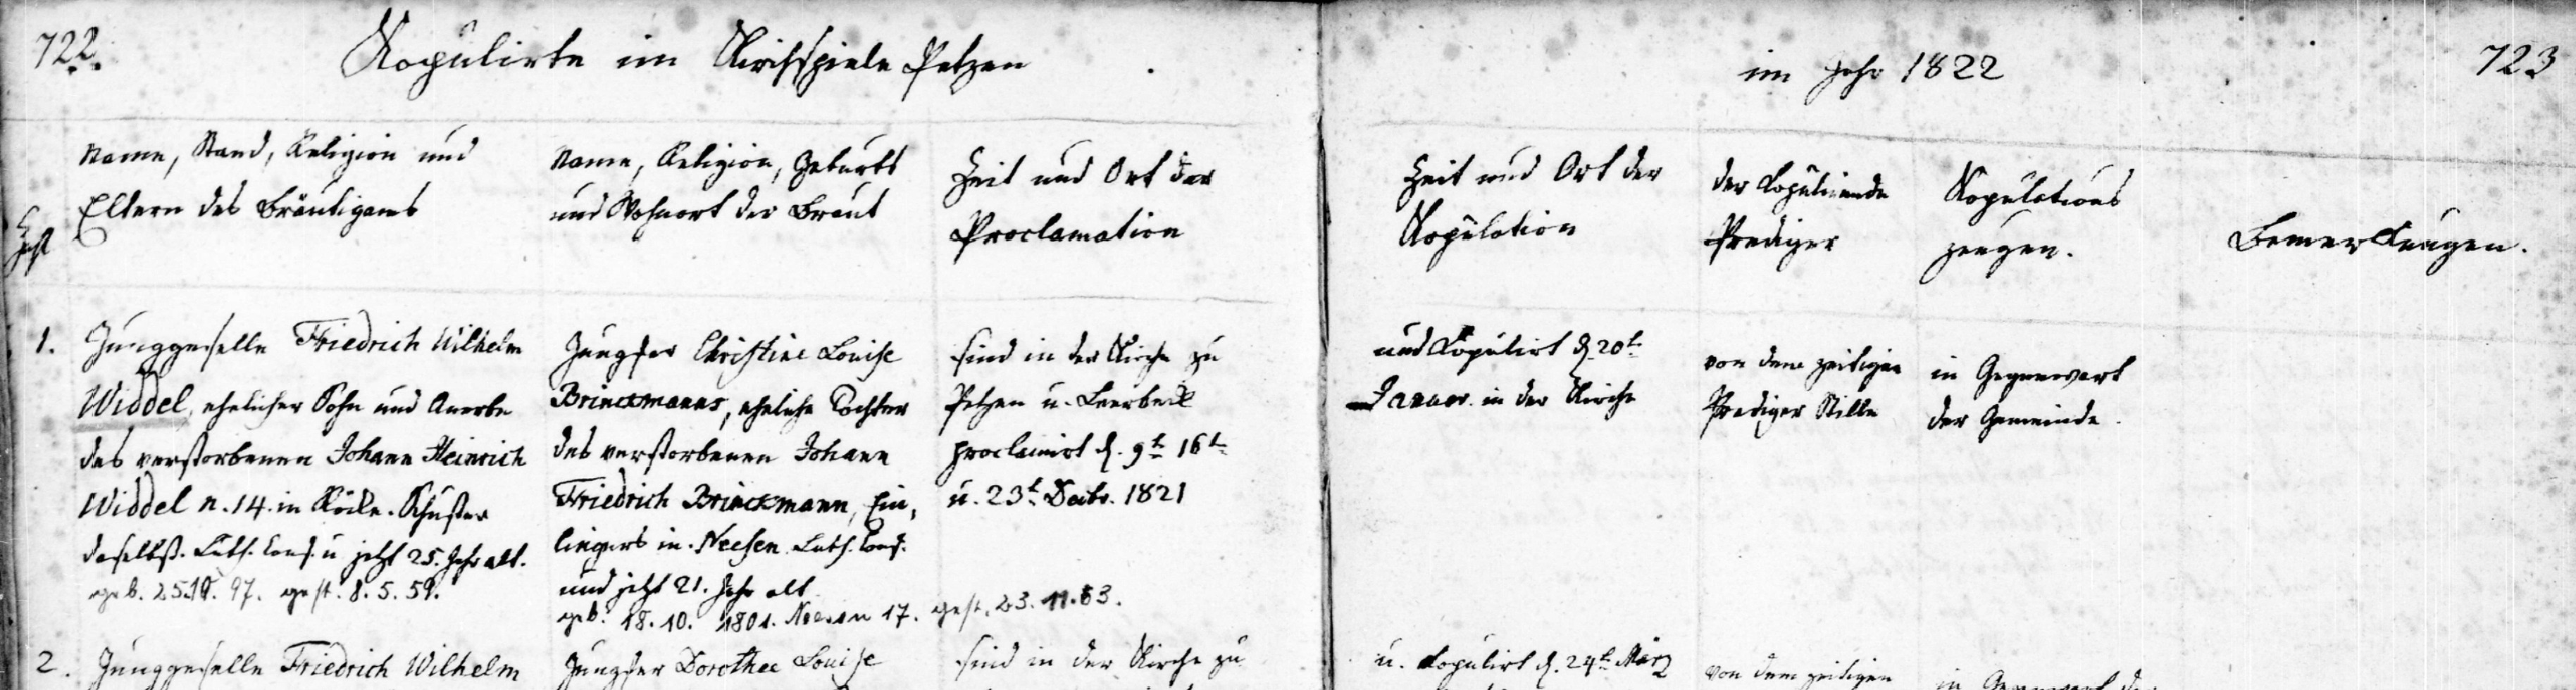 722.
Kopulirte im Kirchspiele Petzen
Name, Stand, Religion und
Eltern des Bräutigams
Name, Religion, Geburts
und Wohnort der Braut
Zeit und Ort der
Proclamation
1. Junggeselle Friedrich Wilhelm
Widdel, ehelicher Sohn und Anerbe
des verstorbenen Johann Heinrich
Widdel n. 14. in Röcke. Schuster
daselbst. Luth. Conf. u jetzt 25. Jahr alt.
geb. 25.10. 97. gest. 8. 5. 59.
Jungfer Christine Louise
Brinckmanns, eheliche Tochter
des verstorbenen Johann
Friedrich Brinckmann, Ein,
liegers in Neesen Luth. Conf.
und jetzt 21. Jahr alt
geb. 18. 10. 1801. Neesen 17. gest. 23. 11. 63.
sind in der Kirche zu
Petzen u. Leerbeck
proclamirt d. 9t 16t
u. 23t Decbr. 1821
2. Junggeselle Friedrich Wilhelm
Jungfer Dorothee Louise
sind in der Kirche zu
im Jahr 1822
723
Zeit und Ort der
Kopulation
der Copulirende
Prediger
Kopulations
zeugen.
Bemerkungen.
und Copulirt d. 20t
Januar. in der Kirche
von dem zeitigen
Prediger Stille
in Gegenwart
der Gemeinde.
u. Copulirt d. 24t März
von dem zeitigen
in Gegenwart der